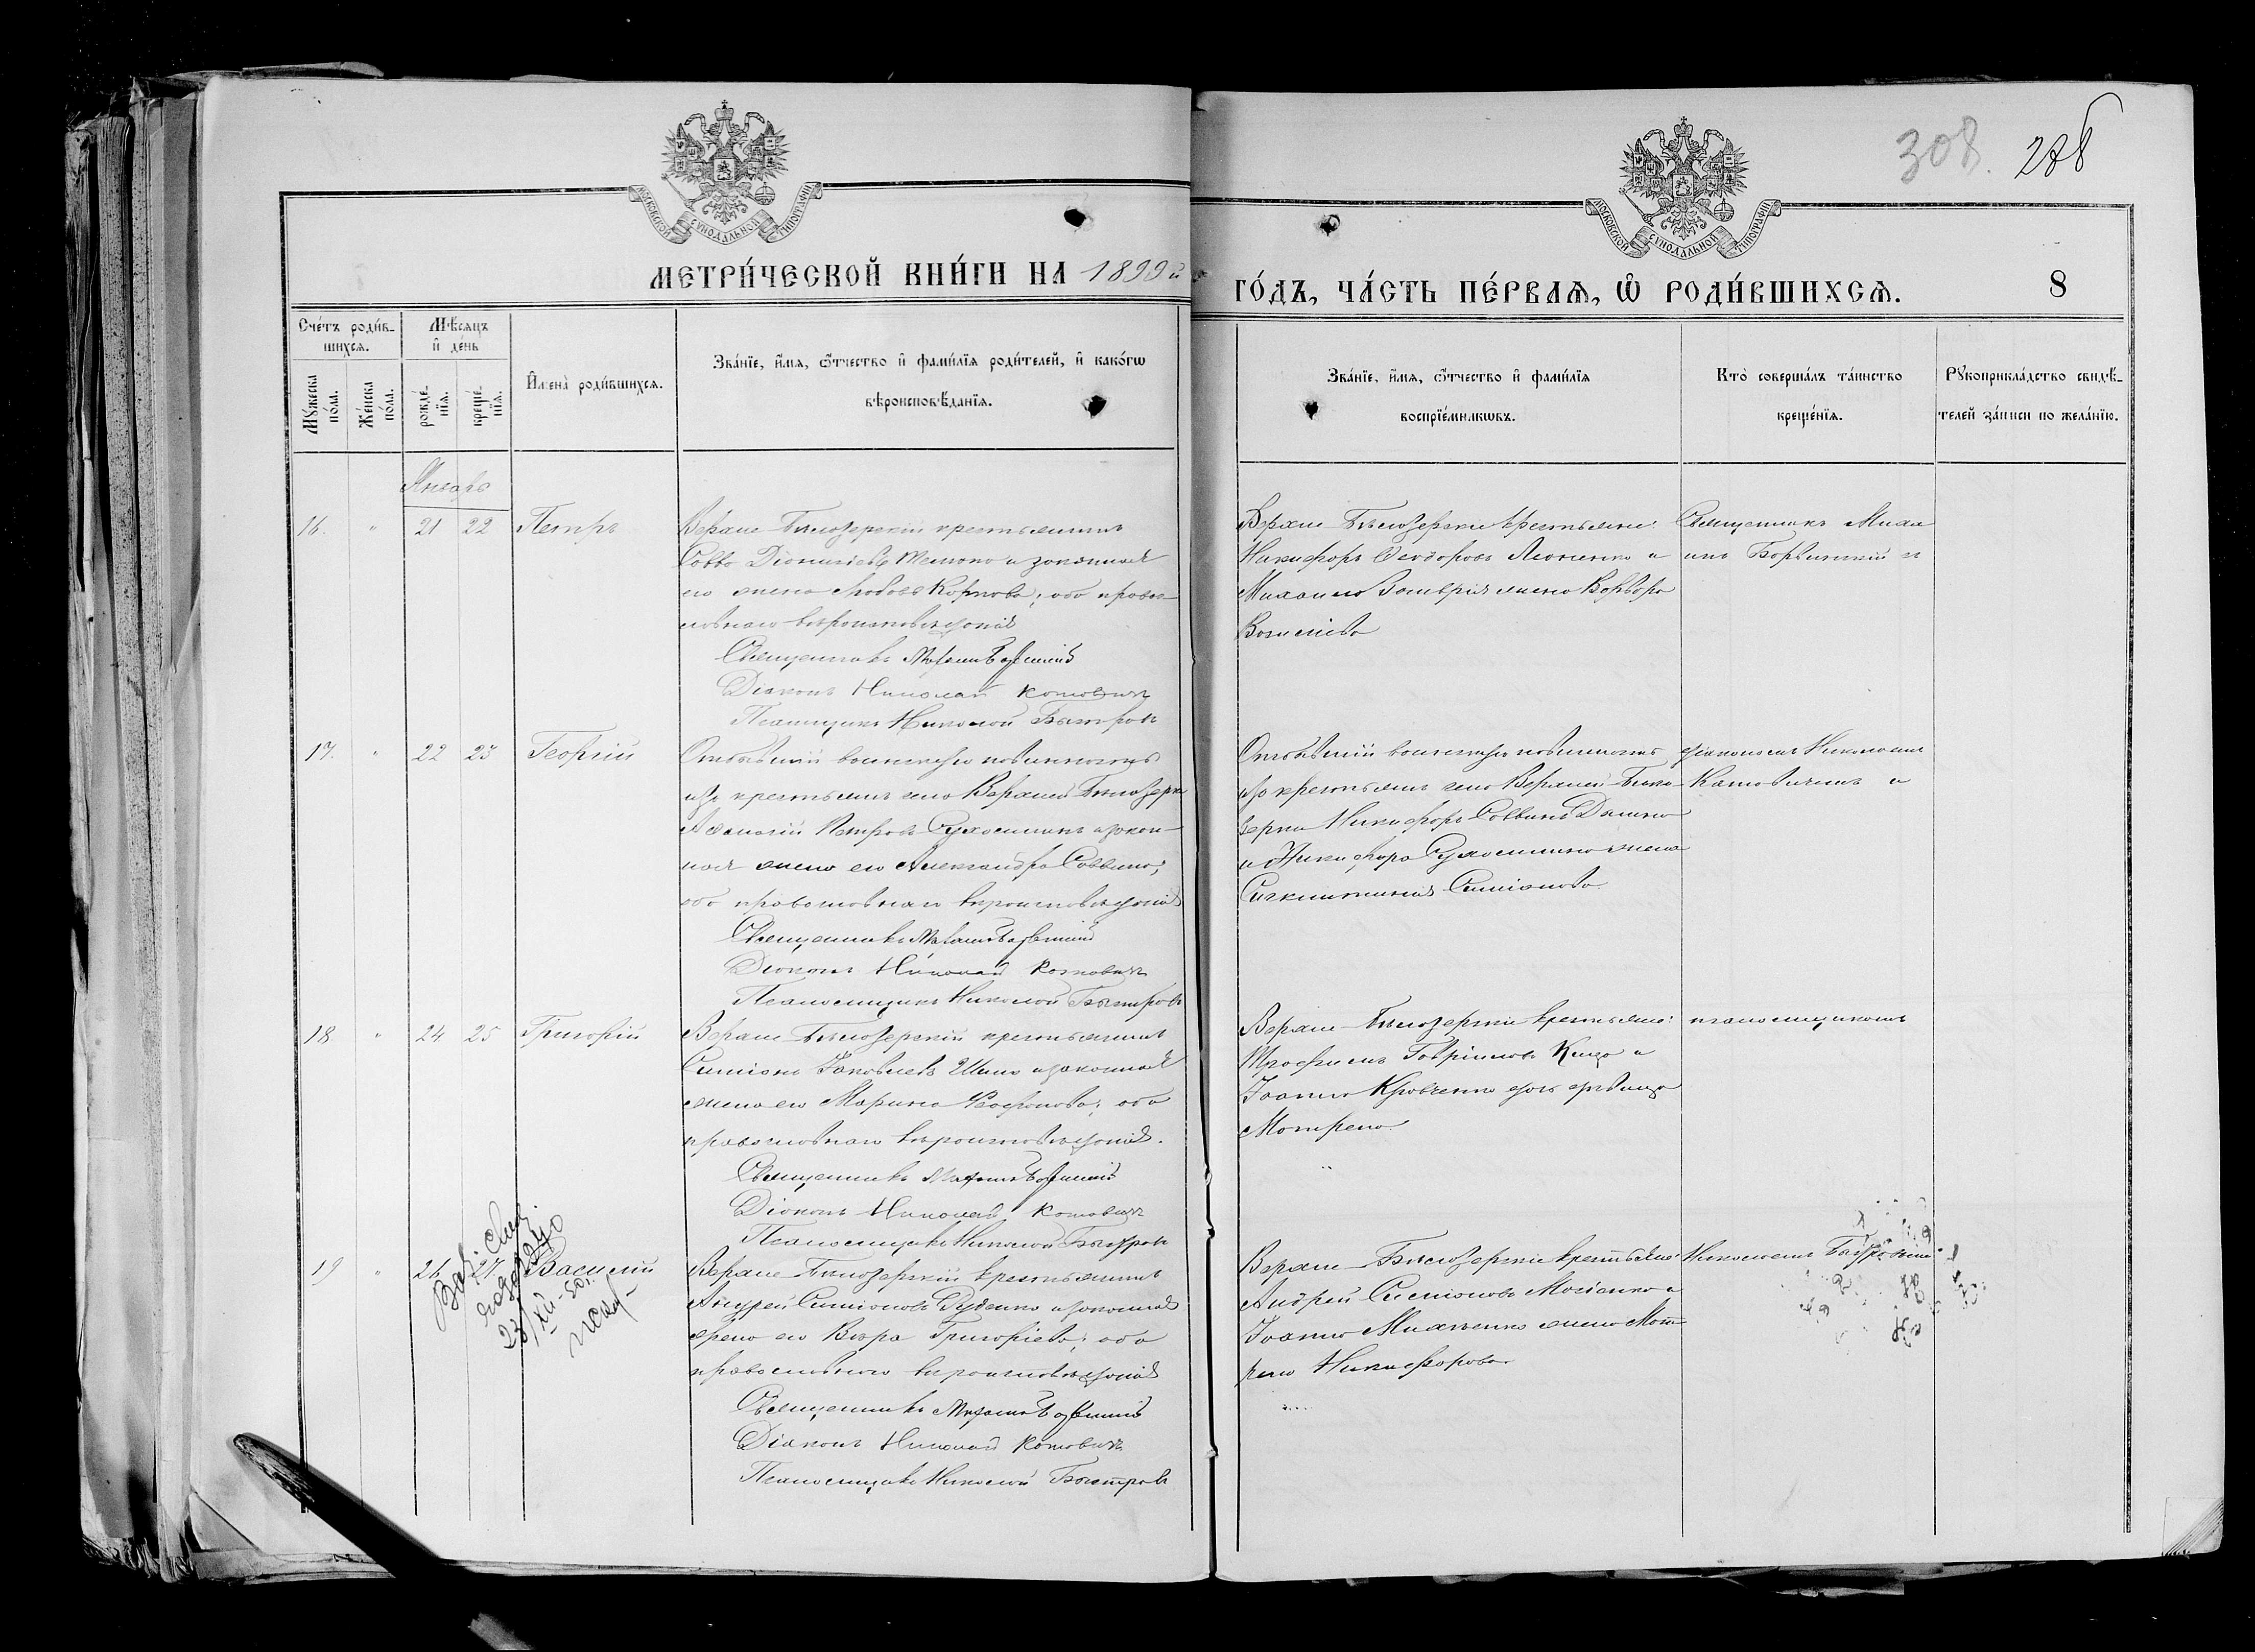 308. 286
МОСКОВСКОЙ СѴНОДАЛЬНОЙ ТИПОГРАФІИ
МОСКОВСКОЙ СѴНОДАЛЬНОЙ ТИПОГРАФІИ
МЕТРИ́ЧЕСКОЙ КНИ́ГИ НА 1899 й
ГО́ДЪ, ЧА́СТЬ ПЕ́РВАѦ, Ѡ҆ РОДИ́ВШИХСѦ. 8
Сче́тъ роди́в-
шихсѧ.
Мꙋ́жеска по́ла.
Же́нска по́ла.
Мѣ́сѧцъ
и҆ де́нь
рожде́-нїѧ.
креще́-нїѧ.
И҆мена̀ роди́вшихсѧ.
Зва́нїе, и҆́мѧ, ѻ҆́тчество и҆ фами́лїѧ роди́телей, и҆ како́гѡ
вѣроисповѣ́данїѧ.
Зва́нїе, и҆́мѧ, ѻ҆́тчество и҆ фами́лїѧ
воспрїе́мникѡвъ.
Кто̀ соверша́лъ та́инство
креще́нїѧ.
Рꙋкоприкла́дство свидѣ́-
телей за́писи по жела́нїю.
Январь
16. " 21 22 Петръ
Верхне-Бѣлозерскій крестьянинъ
Савва Діонисіевъ и законная
его жена Любовь Карпова; оба право-
славнаго вѣроисповѣданія
Священникъ Михаилъ
Діаконъ Николай Котовичъ
Псаломщикъ Николай Быстровъ
Верхне-Бѣлозерскіе крестьяне:
Никифоръ Ѳеодоровъ и
Михаила жена Варвара
Священникъ Миха
илъ и
17. " 22 23 Георгій
Отбывшій воинскую повинность
изъ крестьянъ села Верхней Бѣлозерки
Аѳанасій Петровъ и закон-
ная жена его Александра Саввина;
оба православнаго вѣроисповѣданія
Священникъ Михаилъ
Діаконъ Николай Котовичъ
Псаломщикъ Николай Быстровъ
Отбывшій воинскую повинность
изъ крестьянъ села Верхней Бѣло-
зерки Никифоръ Саввинъ
и Никифора жена
Симеонова
діакономъ Николаемъ
Котовичемъ и
18. " 24 25 Григорій
Верхне-Бѣлозерскій крестьянинъ
Симеонъ Іаковлевъ и законная
жена его Марина; оба
православнаго вѣроисповѣданія.
Священникъ Михаилъ
Діаконъ Николай Котовичъ
Псаломщикъ Николай Быстровъ
Верхне-Бѣлозерскіе крестьяне:
Трофимъ Гавріиловъ и
Іоанна Кравченко дочь дѣвица
Мотрена.
псаломщикомъ
19 " 26 27 Василій
23/XII-50г.
Верхне-Бѣлозерскій крестьянинъ
Андрей Симеоновъ Руденко и законная
жена его Вѣра Григоріева; оба
православнаго вѣроисповѣданія
Священникъ Михаилъ
Діаконъ Николай Котовичъ
Псаломщикъ Николай Быстровъ
Верхне-Бѣлозерскіе крестьяне:
Андрей Симеоновъ Мосіенко и
Іоанна Михненко жена Мот-
рена Никифорова.
Николаемъ Быстровымъ.